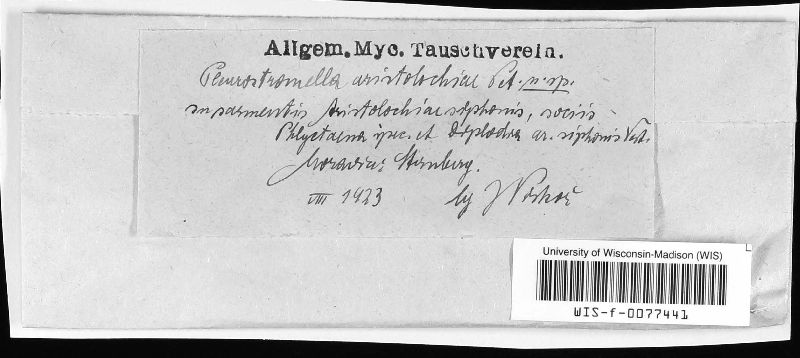 Allgem. Myc. Tauschverein.
Pleurostromella aristolochiae Pet. n. sp.
in sarmentis Aristolochiae siphonis, sociis
Phlyctaena spec. et Diplodia ar. siphonis Vest.
Moravia: Sternberg.
VIII 1923 lg J Piskoř
University of Wisconsin-Madison (WIS)
WIS-f-0077441